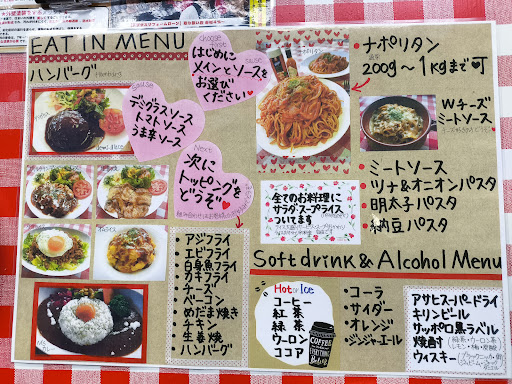 EAT IN MENU
ハンバーグ
はじめに
メインとソースを
お選び
ください
デミグラスソース
トマトソース
うま辛ソース
Next
次に
トッピングを
どうぞ
・アジフライ
・エビフライ
・白身魚フライ
・カキフライ
・チーズ
・ベーコン
・めだま焼き
・チキン
・生姜焼
・ハンバーグ
・ナポリタン
200g～1kgまで可
Wチーズ
ミートソース
・ミートソース
・ツナ&オニオンパスタ
・明太子パスタ
・納豆パスタ
全てのお料理に
サラダ・スープ・ライス
ついてます
Soft drink & Alcohol Menu
Hot or Ice
コーヒー
紅茶
緑茶
ウーロン
ココア
COFFEE
EVERYTHING
・コーラ
・サイダー
・オレンジ
・ジンジャエール
アサヒスーパードライ
キリンビール
サッポロ黒ラベル
焼酎
ウィスキー